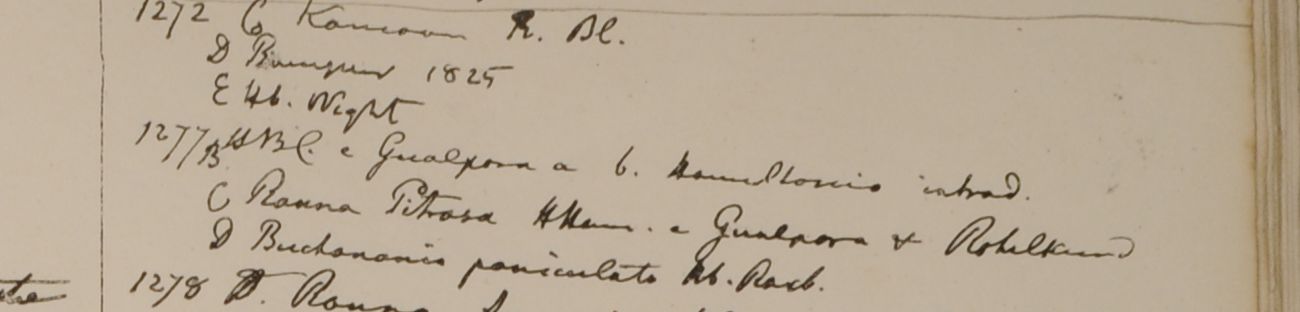 1272 C Kamoon R. Bl.
D 1825
E Hb. Wight
1277 B HBC. e Gualpara a b. Hamiltonio introd.
C Rauna Pitrasa HHam. e Gualpara & Rohilkund
D Buchanania paniculata Hb. Roxb.
1278 D. Rauna